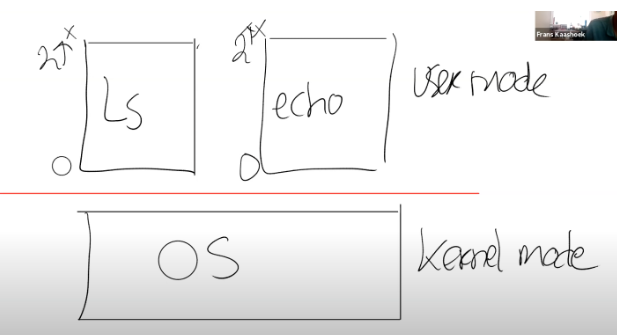 Frans Kaashoek
2^x 2^x
Ls echo user mode
0 0
OS kernel mode